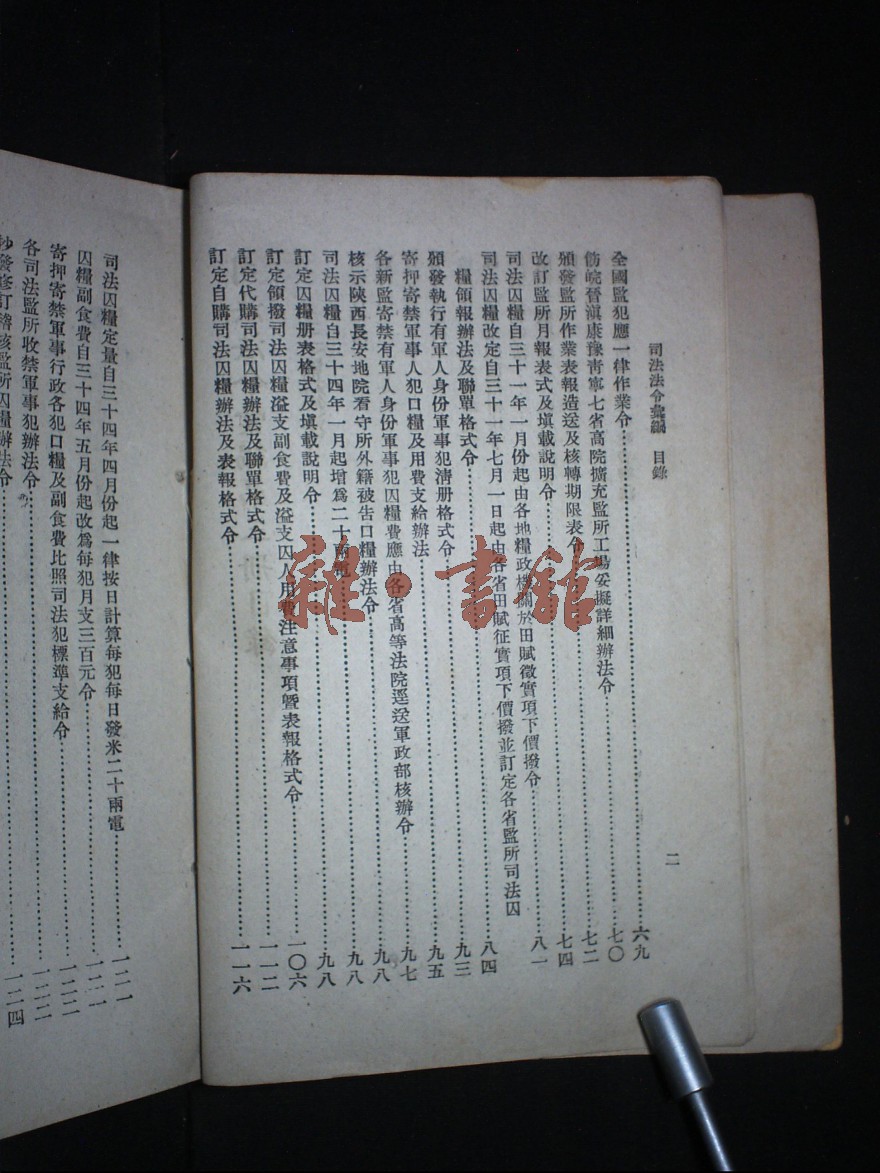 司法法令彙編 目錄
二
全國監犯應一律作業令……六九
飭皖晉滇康豫靑寧七省高院擴充監所工場妥擬詳細辦法令……七〇
頒發監所作業表報造送及核轉期限表令……七二
改訂監所月報表式及塡載說明令……七四
司法囚糧自三十一年一月份起由各地糧政機關於田賦徵實項下價撥令……八一
司法囚糧改定自三十一年七月一日起由各省田賦征實項下價撥並訂定各省監所司法囚
糧領報辦法及聯單格式令……八四
頒發執行有軍人身份軍事犯淸册格式令……九三
寄押寄禁軍事人犯口糧及用費支給辦法……九五
各新監寄禁有軍人身份軍事犯囚糧費應由各省高等法院逕送軍政部核辦令……九七
核示陝西長安地院看守所外籍被告口糧辦法令……九八
司法囚糧自三十四年一月起增爲二十兩電……九八
訂定囚糧册表格式及塡載說明令……九八
訂定領撥司法囚糧溢支副食費及溢支囚人用費注意事項曁表報格式令……一〇六
訂定代購司法囚糧辦法及聯單格式令……一一二
訂定自購司法囚糧辦法及表報格式令……一一六
司法囚糧定量自三十四年四月份起一律按日計算每犯每日發米二十兩電……一二一
囚糧副食費自三十四年五月份起改爲每犯月支三百元令……一二一
寄押寄禁軍事行政各犯口糧及副食費比照司法犯標準支給令……一二二
各司法監所收禁軍事犯辦法令……一二二
抄發修訂稽核監所囚糧辦法令……一二四
雜·書館